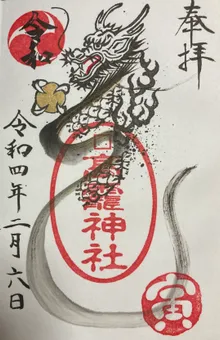 奉拝
令和
龗神社
寅
令和四年二月六日